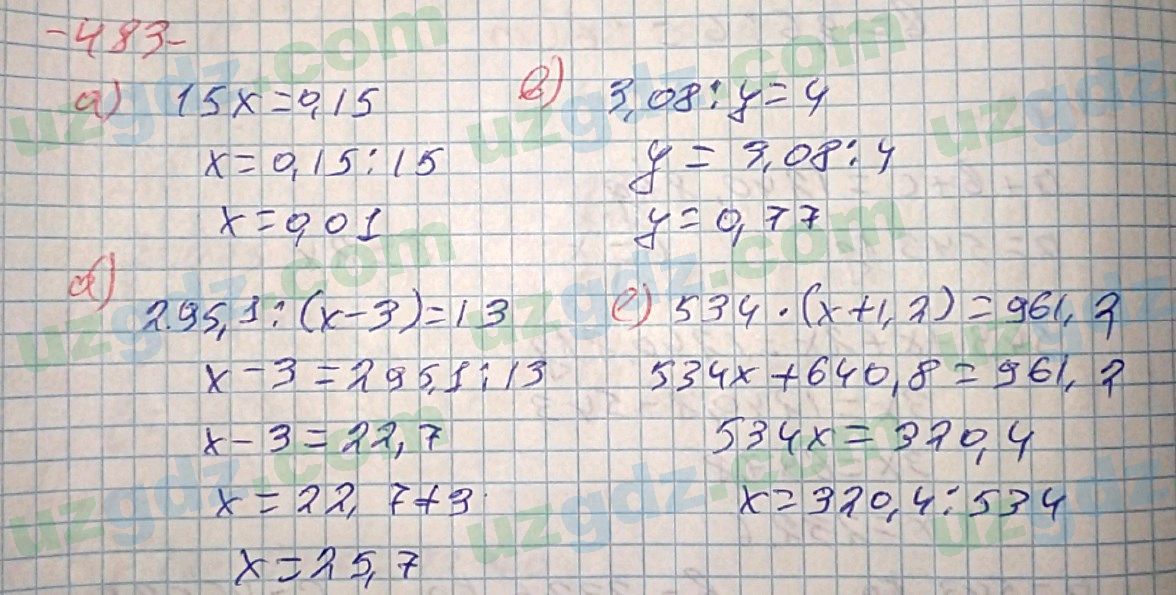 -483-
а) 15x=0,15
x=0,15:15
x=0,01
в) 3,08:y=4
y=3,08:4
y=0,77
б) 295,1:(x-3)=13
x-3=295,1:13
x-3=22,7
x=22,7+3
x=25,7
е) 534·(x+1,2)=961,2
534x+640,8=961,2
534x=320,4
x=320,4:534
uzgdz.com